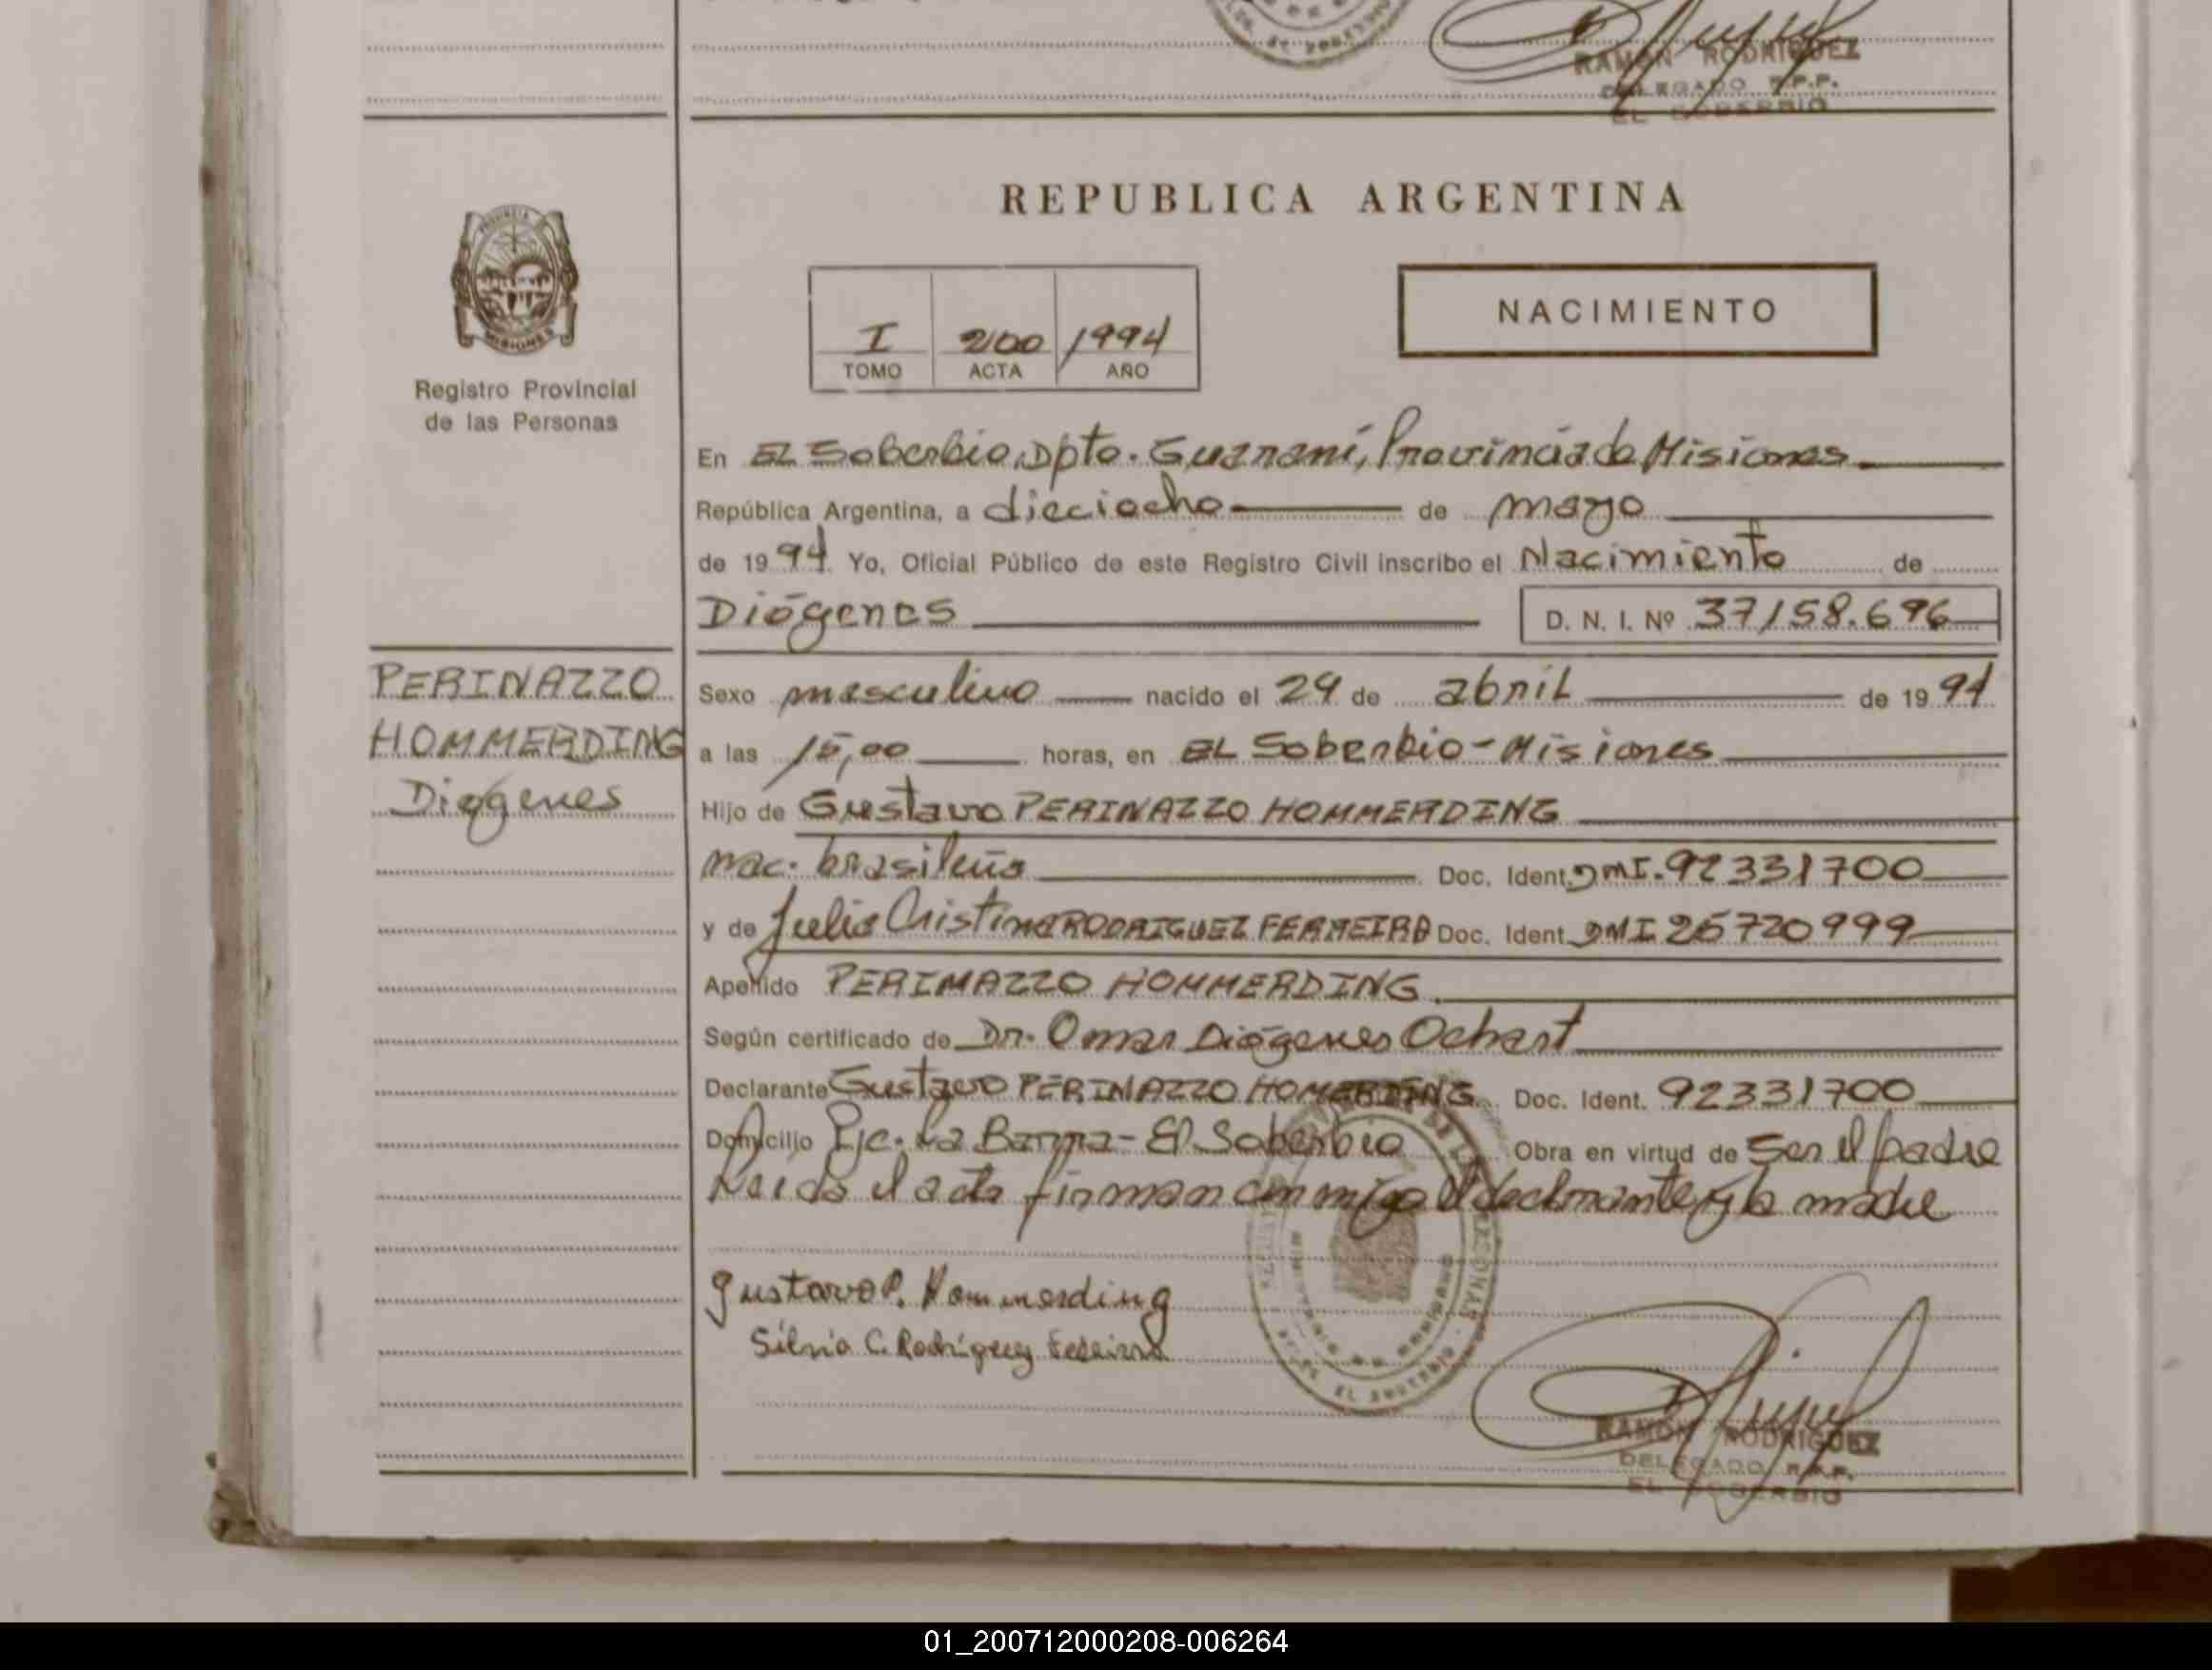 RAMÓN RODRIGUEZ
DELEGADO R.P.P.
EL SOBERBIO
REPUBLICA ARGENTINA
PROVINCIA
MISIONES
Registro Provincial
de las Personas
I 200 1994
TOMO ACTA AÑO
NACIMIENTO
En El Soberbio, Dpto. Guaraní, Provincia de Misiones
República Argentina, a dieciocho de mayo
de 1994 Yo, Oficial Público de este Registro Civil inscribo el Nacimiento de
Diógenes D. N. I. Nº 37158.696
PERINAZZO
HOMMERDING
Diógenes
Sexo masculino nacido el 24 de abril de 1994
a las 15,00 horas, en El Soberbio - Misiones
Hijo de Gustavo PERINAZZO HOMMERDING
nac. brasileña Doc. Ident. DNI. 92331700
y de Cristina RODRIGUEZ FERREIRA Doc. Ident. DNI 25720999
Apellido PERINAZZO HOMMERDING
Según certificado de Dr. Omar Diógenes Ochast
Declarante Gustavo PERINAZZO HOMERDING Doc. Ident. 92331700
Domicilio Pje. La Barra - El Soberbio Obra en virtud de Ser el padre
Leída el acta firman conmigo el declarante y la madre
Gustavo P. Hommerding
Silvia C. Rodríguez Ferreira
EL SOBERBIO
RAMÓN RODRIGUEZ
DELEGADO R.P.P.
EL SOBERBIO
01_200712000208-006264